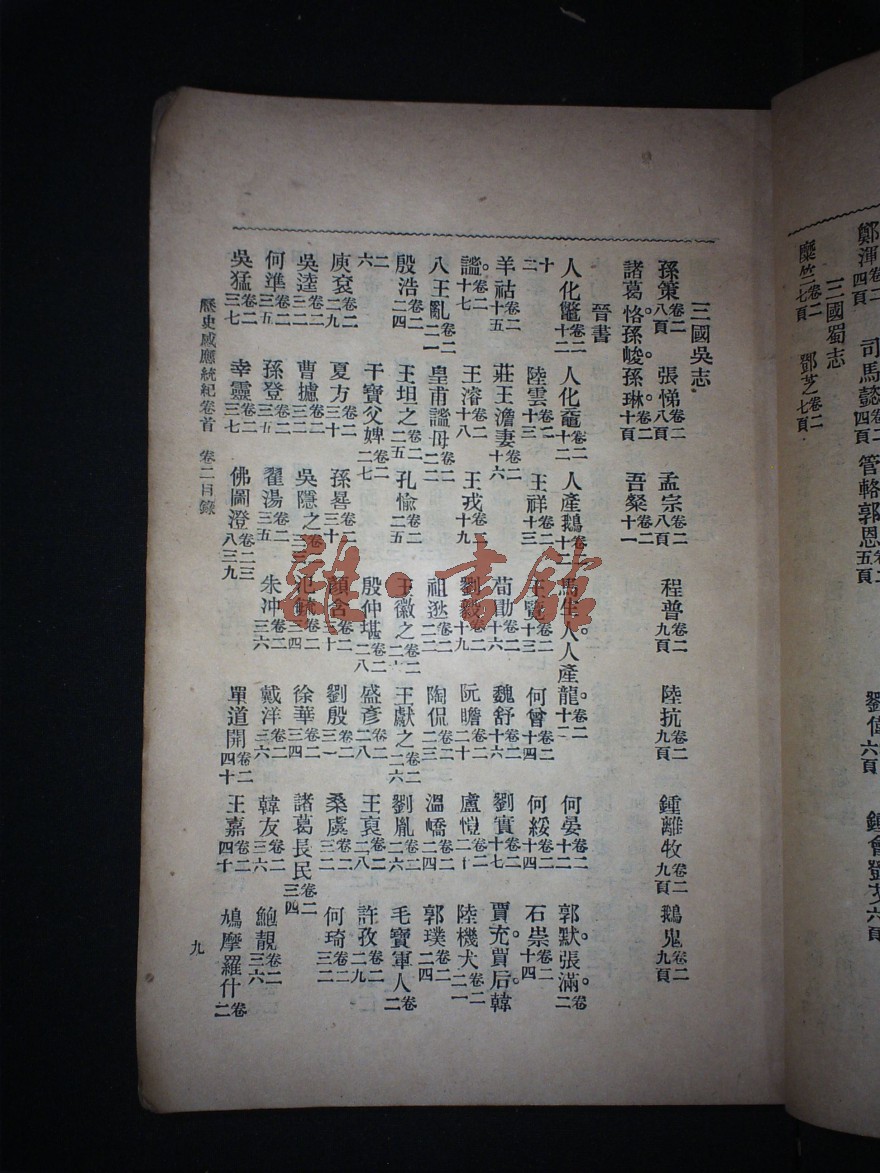 鄭渾卷二四頁 司馬懿卷二四頁 管輅郭恩卷二五頁 劉偉六頁 鍾會鄧艾六頁
三國蜀志
麋竺卷二七頁 鄧芝卷二七頁
三國吳志
孫策卷二八頁 張悌卷二八頁 孟宗卷二八頁 程普卷二九頁 陸抗卷二九頁 鍾離牧卷二九頁 鵝鬼卷二九頁
諸葛恪。孫峻。孫琳卷二十頁 吾粲卷二十一
晉書
人化鼈卷二十二 人化黿卷二十二 人產鵝卷二十二 馬生人。人產龍。卷二十二 何晏卷二十二 郭默。張滿。卷二
十二 陸雲卷二十三 王祥卷二十三 王覽卷二十三 何曾卷二十四 何綏卷二十四 石崇卷二十四
羊祜卷二十五 莊王澹妻卷二十六 荀勖卷二十六 魏舒卷二十六 劉寔卷二十七 賈充。賈后。韓
謐。卷二十七 王濬卷二十八 王戎卷二十九 劉毅卷二十九 阮瞻卷二二十 盧愷卷二二十 陸機犬卷二二一
八王亂卷二二一 皇甫謐母卷二二二 祖逖卷二二二 陶侃卷二二三 溫嶠卷二二四 郭璞卷二二四
殷浩卷二二四 王坦之卷二二五 孔愉卷二二五 王徽之卷二二六 王獻之卷二二六 劉胤卷二二六 毛寶軍人卷二
二六 干寶父婢卷二二七 殷仲堪卷二二八 盛彥卷二二八 王裒卷二二八 許孜卷二二九
庾袞卷二二九 夏方卷二三十 孫晷卷二三十 顏含卷二三十 劉殷卷二三一 桑虞卷二三二 何琦卷二三二
吳逵卷二三二 曹攄卷二三二 吳隱之卷二三三 氾毓卷二三四 徐華卷二三四 諸葛長民卷二三四
何準卷二三五 孫登卷二三五 翟湯卷二三五 朱沖卷二三六 戴洋卷二三六 韓友卷二三六 鮑靚卷二三六
吳猛卷二三七 幸靈卷二三七 佛圖澄卷二三八三九 單道開卷二四十 王嘉卷二四十 鳩摩羅什卷二
歷史感應統紀卷首 卷二目錄 九
雜·書館